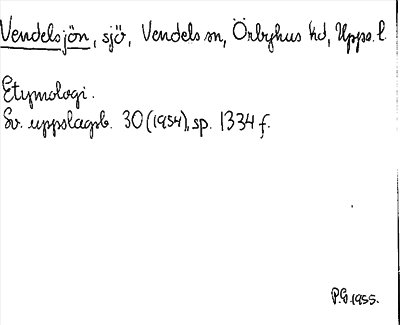 Vendelsjön, sjö, Vendels sn, Örbyhus hd, Upps. l.
Etymologi.
Sv. uppslagsb. 30 (1954), sp. 1334 f.
P.G 1955.